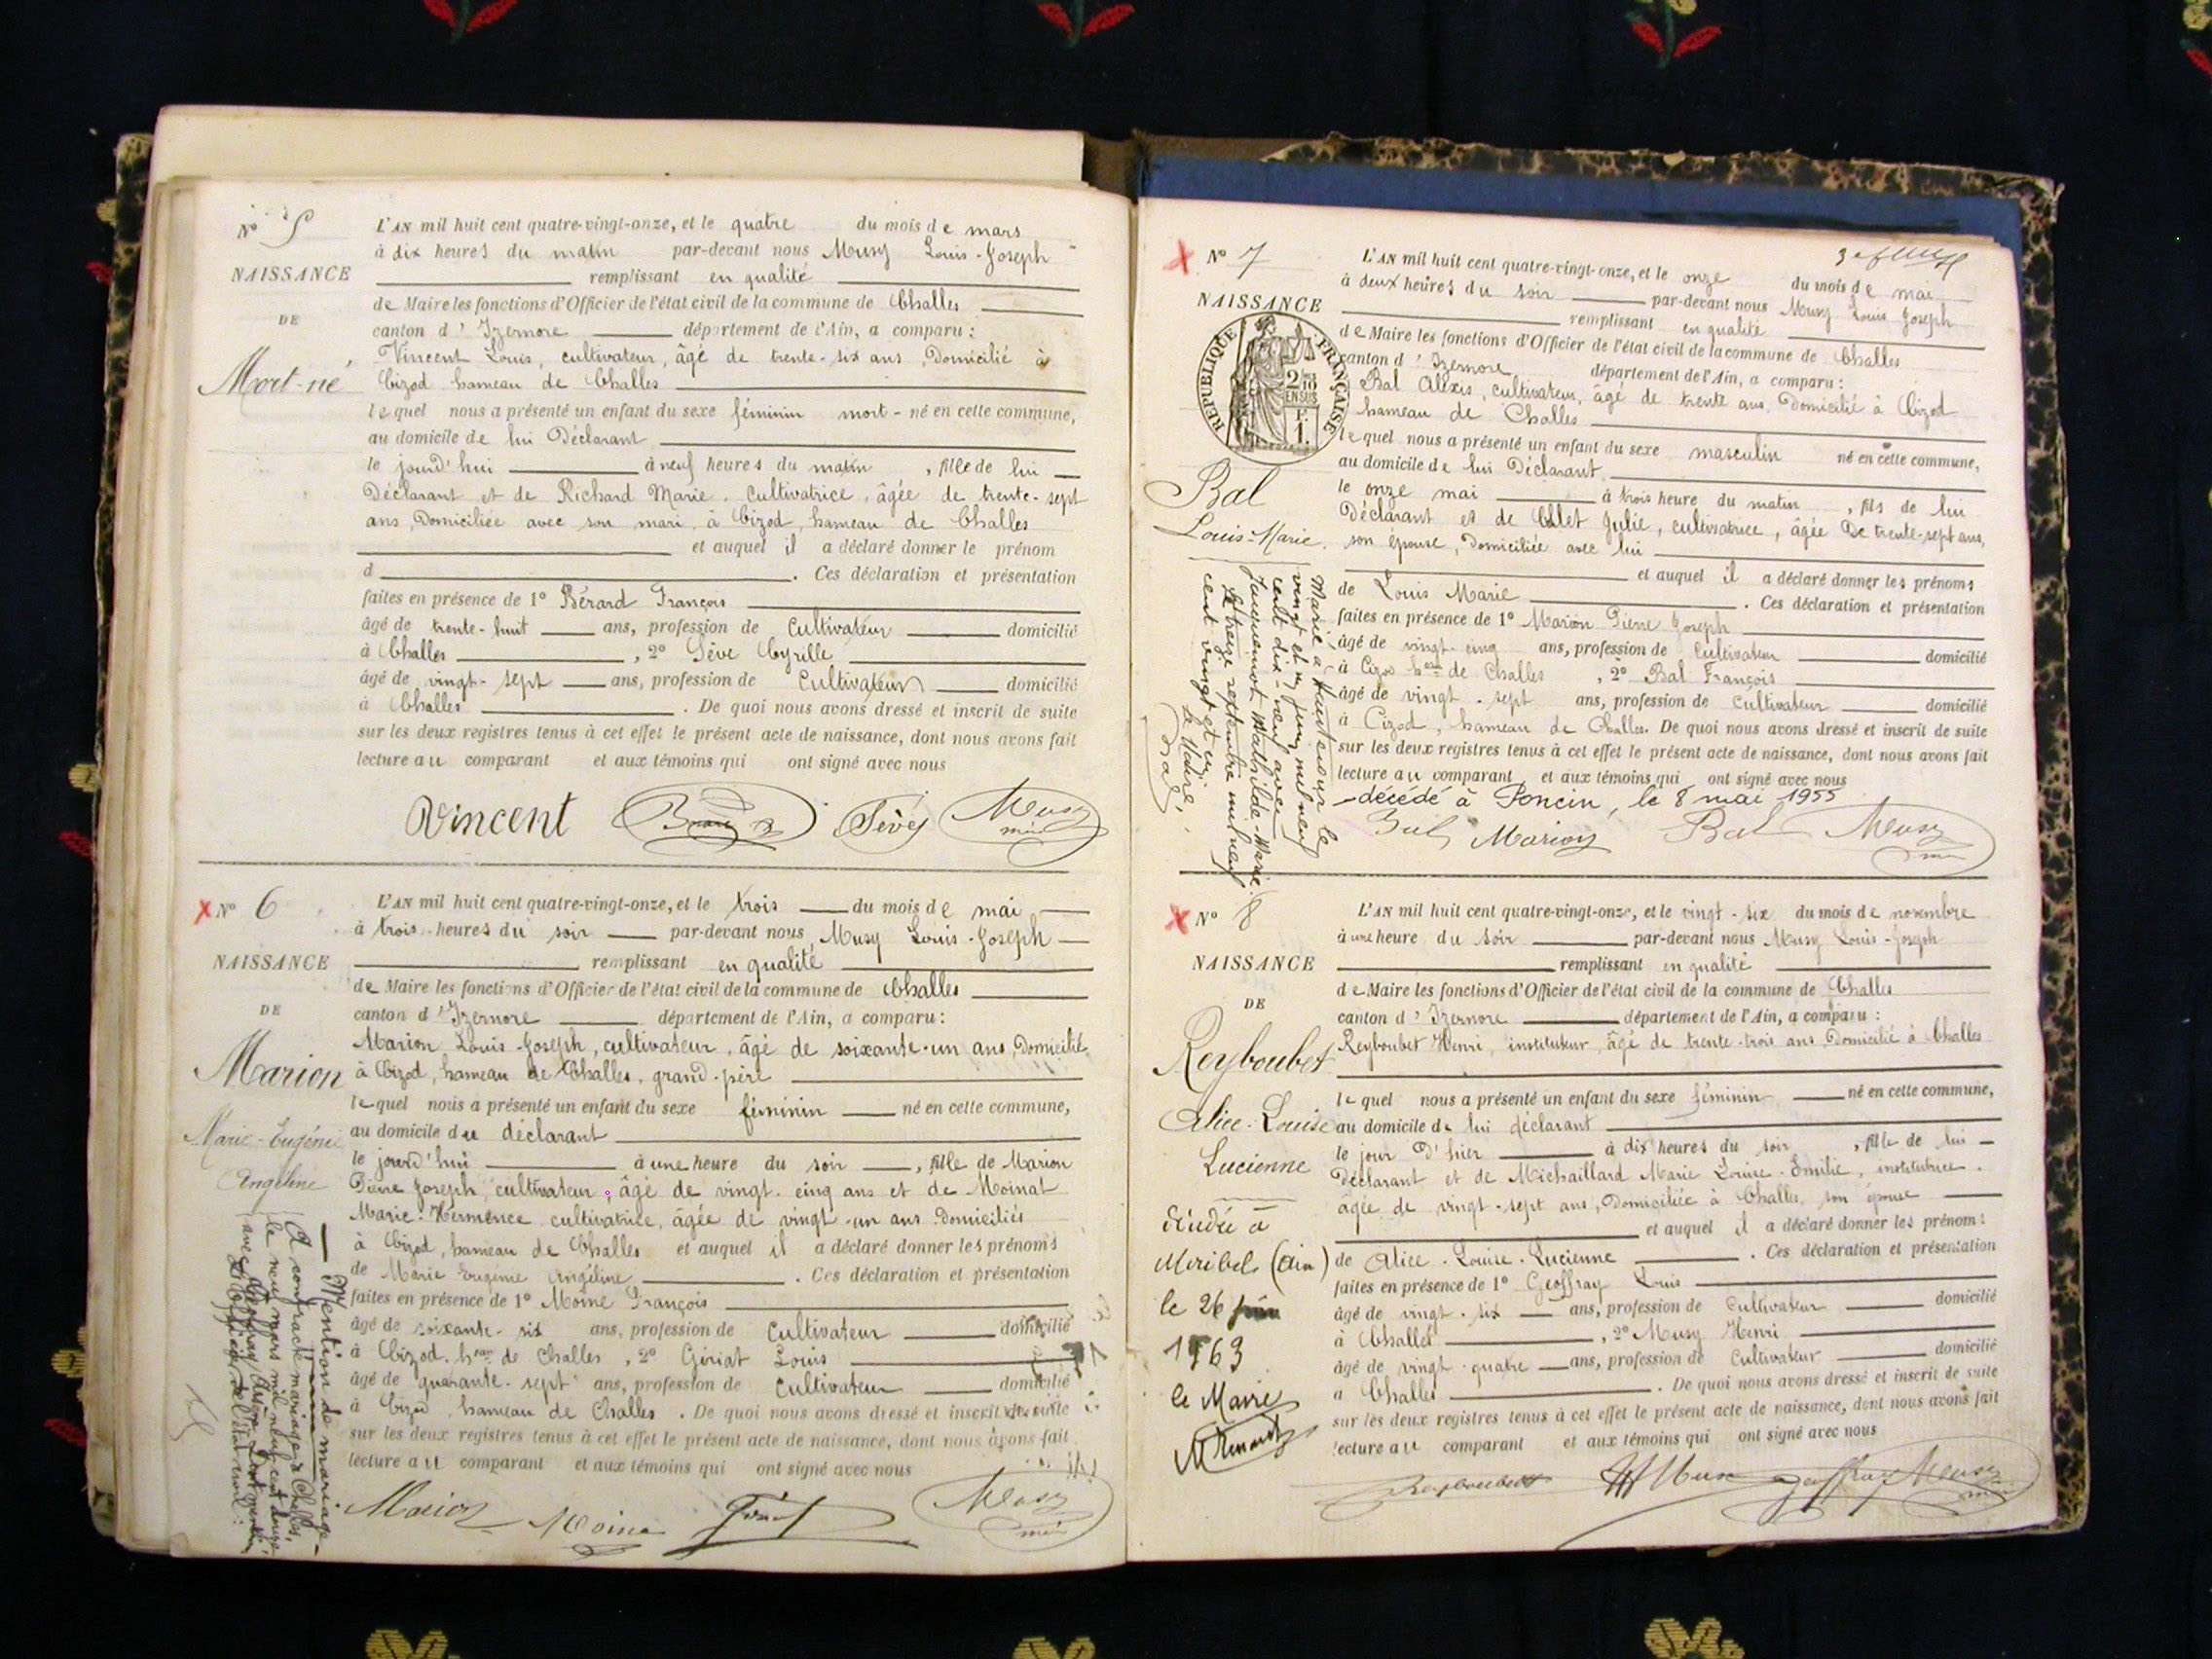 N° 5
NAISSANCE
DE
Mort-né
L'AN mil huit cent quatre-vingt-onze, et le quatre du mois de mars
à dix heures du matin par-devant nous Musy Louis-Joseph
remplissant en qualité
de Maire les fonctions d'Officier de l'état civil de la commune de Challes
canton d'Izernore département de l'Ain, a comparu :
Vincent Louis, cultivateur, âgé de trente-six ans, Domicilié à
Cizod hameau de Challes
lequel nous a présenté un enfant du sexe féminin mort-né en cette commune,
au domicile de lui Déclarant
le jourd'hui à neuf heures du matin, fille de lui
Déclarant et de Richard Marie, cultivatrice, âgée de trente-sept
ans, Domiciliée avec son mari, à Cizod, hameau de Challes
et auquel il a déclaré donner le prénom
d . Ces déclaration et présentation
faites en présence de 1° Bérard François
âgé de trente-huit ans, profession de Cultivateur domicilié
à Challes, 2° Sève Cyrille
âgé de vingt-sept ans, profession de Cultivateur domicilié
à Challes. De quoi nous avons dressé et inscrit de suite
sur les deux registres tenus à cet effet le présent acte de naissance, dont nous avons fait
lecture au comparant et aux témoins qui ont signé avec nous
Vincent Sève Musy
N° 6
NAISSANCE
DE
Marion
Marie-Eugénie
Angéline
L'AN mil huit cent quatre-vingt-onze, et le trois du mois de mai
à trois heures du soir par-devant nous Musy Louis-Joseph
remplissant en qualité
de Maire les fonctions d'Officier de l'état civil de la commune de Challes
canton d'Izernore département de l'Ain, a comparu :
Marion Louis-Joseph, cultivateur, âgé de soixante-un ans, Domicilié
à Cizod, hameau de Challes, grand-père
lequel nous a présenté un enfant du sexe féminin né en cette commune,
au domicile du déclarant
le jourd'hui à une heure du soir, fille de Marion
Pierre Joseph, cultivateur, âgé de vingt-cinq ans et de Moinat
Marie-Hermence cultivatrice, âgée de vingt-un ans Domiciliés
à Cizod, hameau de Challes et auquel il a déclaré donner les prénoms
de Marie Eugénie Angéline. Ces déclaration et présentation
faites en présence de 1° Moine François
âgé de soixante-six ans, profession de Cultivateur domicilié
à Cizod, heau de Challes, 2° Giriat Louis
âgé de quarante-sept ans, profession de Cultivateur domicilié
à Cizod, hameau de Challes. De quoi nous avons dressé et inscrit de suite
sur les deux registres tenus à cet effet le présent acte de naissance, dont nous avons fait
lecture au comparant et aux témoins qui ont signé avec nous
Mention de mariage
A contracté mariage à Challes,
le neuf mars mil neuf cent douze
avec Geoffray
L'Officier de l'état civil :
Marion Moine Giriat Musy
N° 7
NAISSANCE
RÉPUBLIQUE FRANÇAISE
Bal
Louis-Marie
L'AN mil huit cent quatre-vingt-onze, et le onze du mois de mai
à deux heures du soir par-devant nous Musy Louis Joseph
remplissant en qualité
de Maire les fonctions d'Officier de l'état civil de la commune de Challes
canton d'Izernore département de l'Ain, a comparu :
Bal Alexis, cultivateur, âgé de trente ans, Domicilié à Cizod
hameau de Challes
lequel nous a présenté un enfant du sexe masculin né en cette commune,
au domicile de lui Déclarant
le onze mai à trois heure du matin, fils de lui
Déclarant et de Julie, cultivatrice, âgée de trente-sept ans,
son épouse, domiciliée avec lui
et auquel il a déclaré donner les prénoms
de Louis Marie. Ces déclaration et présentation
faites en présence de 1° Marion Pierre Joseph
âgé de vingt-cinq ans, profession de Cultivateur domicilié
à Cizod heau de Challes, 2° Bal François
âgé de vingt-sept ans, profession de Cultivateur domicilié
à Cizod, hameau de Challes. De quoi nous avons dressé et inscrit de suite
sur les deux registres tenus à cet effet le présent acte de naissance, dont nous avons fait
lecture au comparant et aux témoins qui ont signé avec nous
décédé à Poncin, le 8 mai 1955
Marié à le
vingt et un juin mil neuf
cent dix-neuf avec
Mathilde Marie.
Le treize septembre mil neuf
cent vingt et un
Le Maire,
Bal Marion Bal Musy
N° 8
NAISSANCE
DE
Reyboubet
Alice-Louise
Lucienne
décédée à
Miribel (Ain)
le 26 juin
1963
le Maire
L'AN mil huit cent quatre-vingt-onze, et le vingt-six du mois de novembre
à une heure du soir par-devant nous Musy Louis-Joseph
remplissant en qualité
de Maire les fonctions d'Officier de l'état civil de la commune de Challes
canton d'Izernore département de l'Ain, a comparu :
Reyboubet Henri, instituteur, âgé de trente-trois ans Domicilié à Challes
lequel nous a présenté un enfant du sexe féminin né en cette commune,
au domicile de lui déclarant
le jour d'hier à dix heures du soir, fille de lui
Déclarant et de Michaillard Marie Louise-Emilie, institutrice,
âgée de vingt-sept ans, Domiciliée à Challes, son épouse
et auquel il a déclaré donner les prénoms
de Alice-Louise-Lucienne. Ces déclaration et présentation
faites en présence de 1° Geoffray Louis
âgé de vingt-six ans, profession de Cultivateur domicilié
à Challes, 2° Musy Henri
âgé de vingt-quatre ans, profession de Cultivateur domicilié
à Challes. De quoi nous avons dressé et inscrit de suite
sur les deux registres tenus à cet effet le présent acte de naissance, dont nous avons fait
lecture au comparant et aux témoins qui ont signé avec nous
Reyboubet H Musy Geoffray Musy